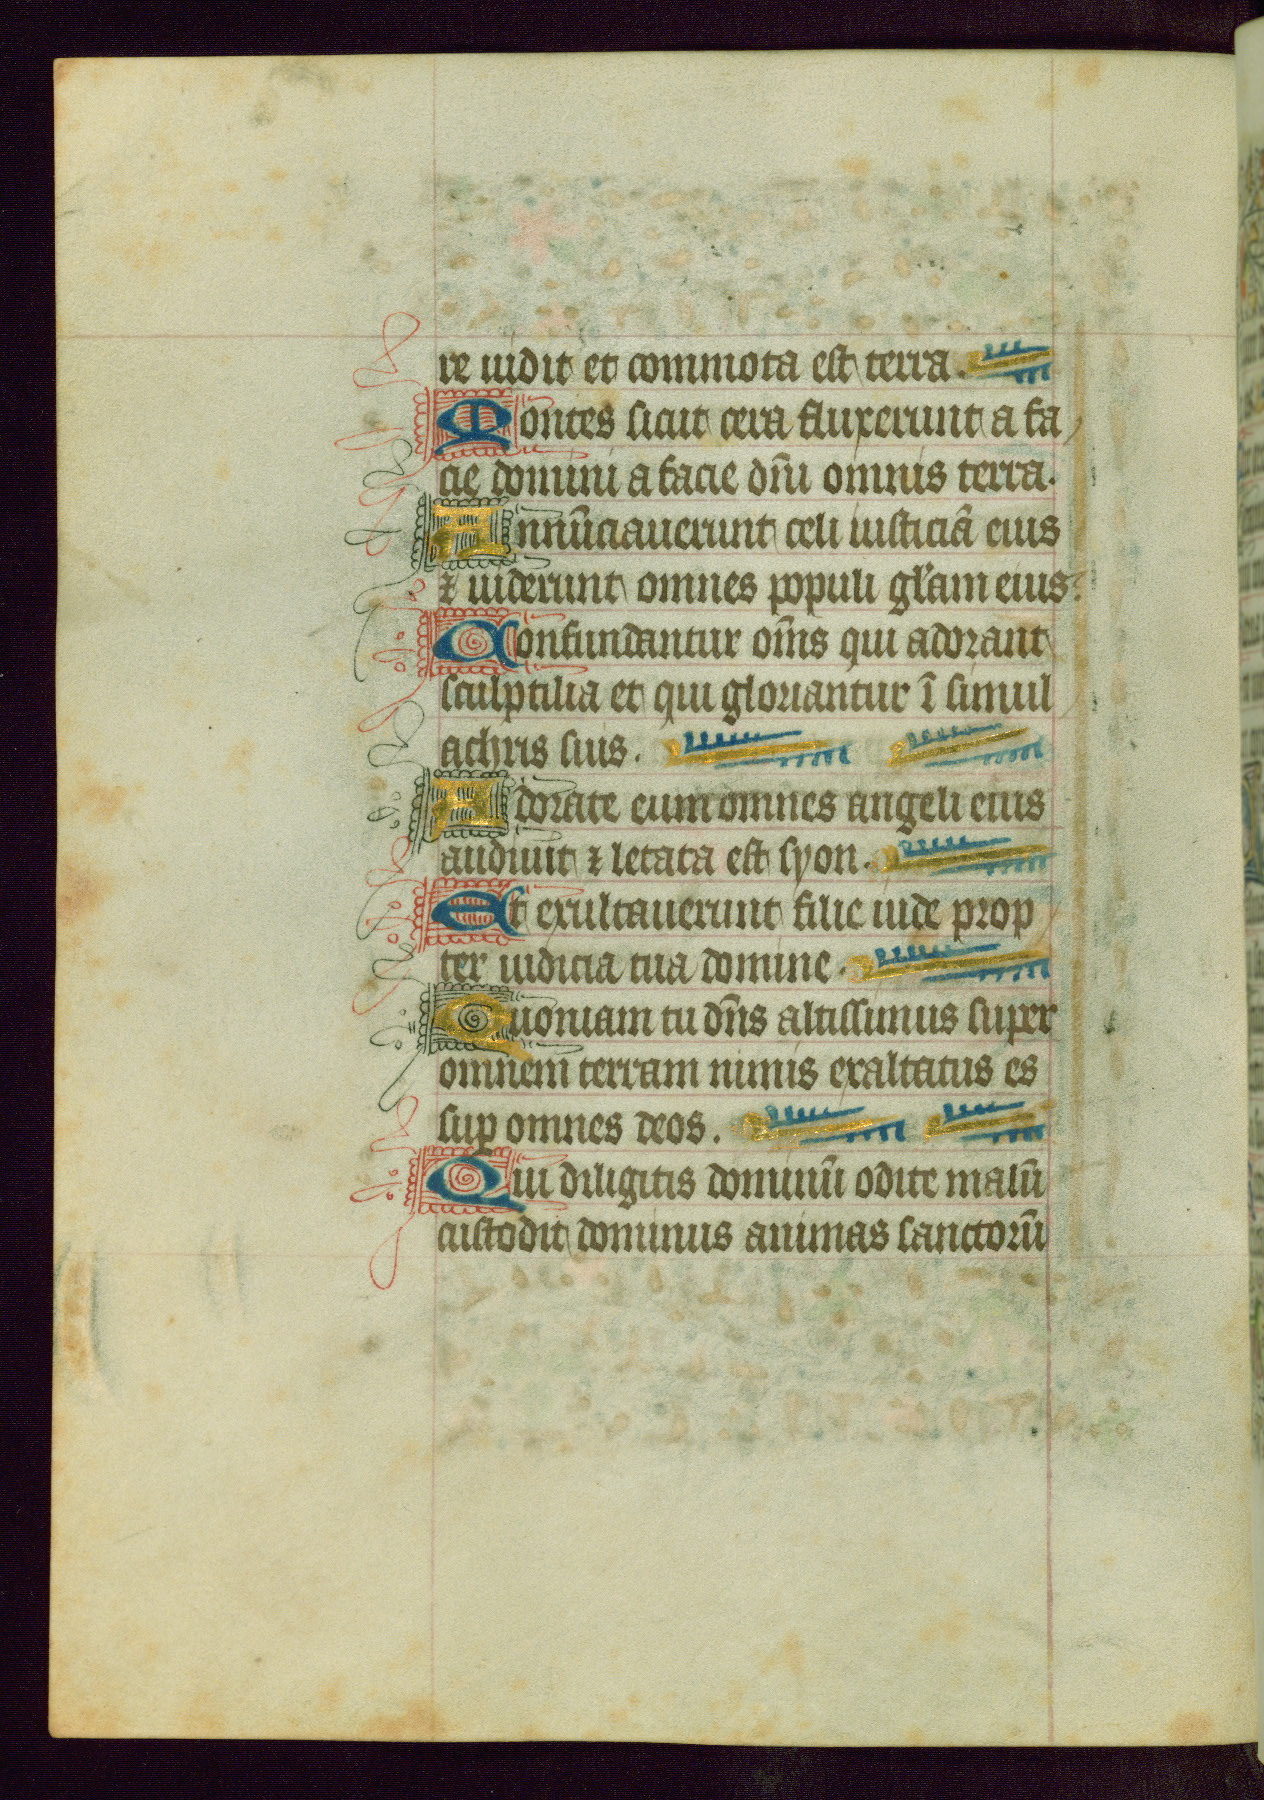 re uidit et commota est terra.
Montes sicut cera fluxerunt a fa
cie domini a facie dñi omnis terra.
Annũciauerunt celi iusticiã eius
⁊ uiderunt omnes populi gl̃am eius.
Confundantur om̃s qui adorant
sculptilia et qui gloriantur ĩ simul
achris suis.
Adorate eum omnes angeli eius
audiuit ⁊ letata est syon.
Et exultauerunt filie iude prop
ter iudicia tua domine.
Quoniam tu dñs altissimus super
omnem terram nimis exaltatus es
suꝑ omnes deos.
Qui diligitis dominũ odite malũ
custodit dominus animas sanctorũ